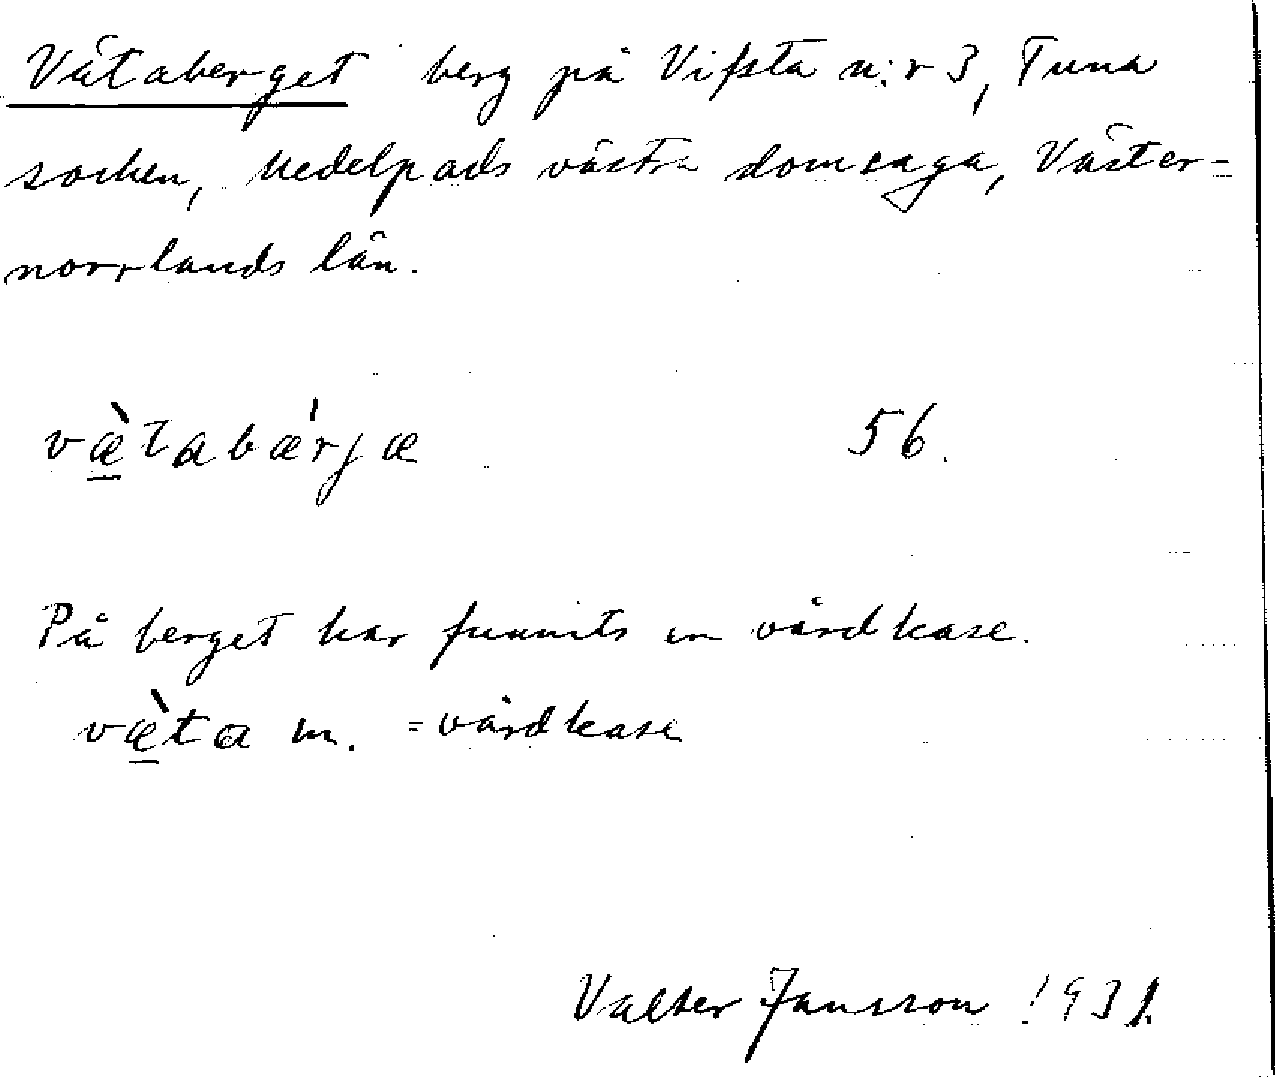 Vätaberget berg på Vifsta n:r 3, Tuna
socken, Medelpads västra domsaga, Väster-
norrlands län.
væ̀tabǽrjæ 56.
På berget har funnits en vårdkase.
væ̀ta m. = vårdkase
Valter Jansson 1931.